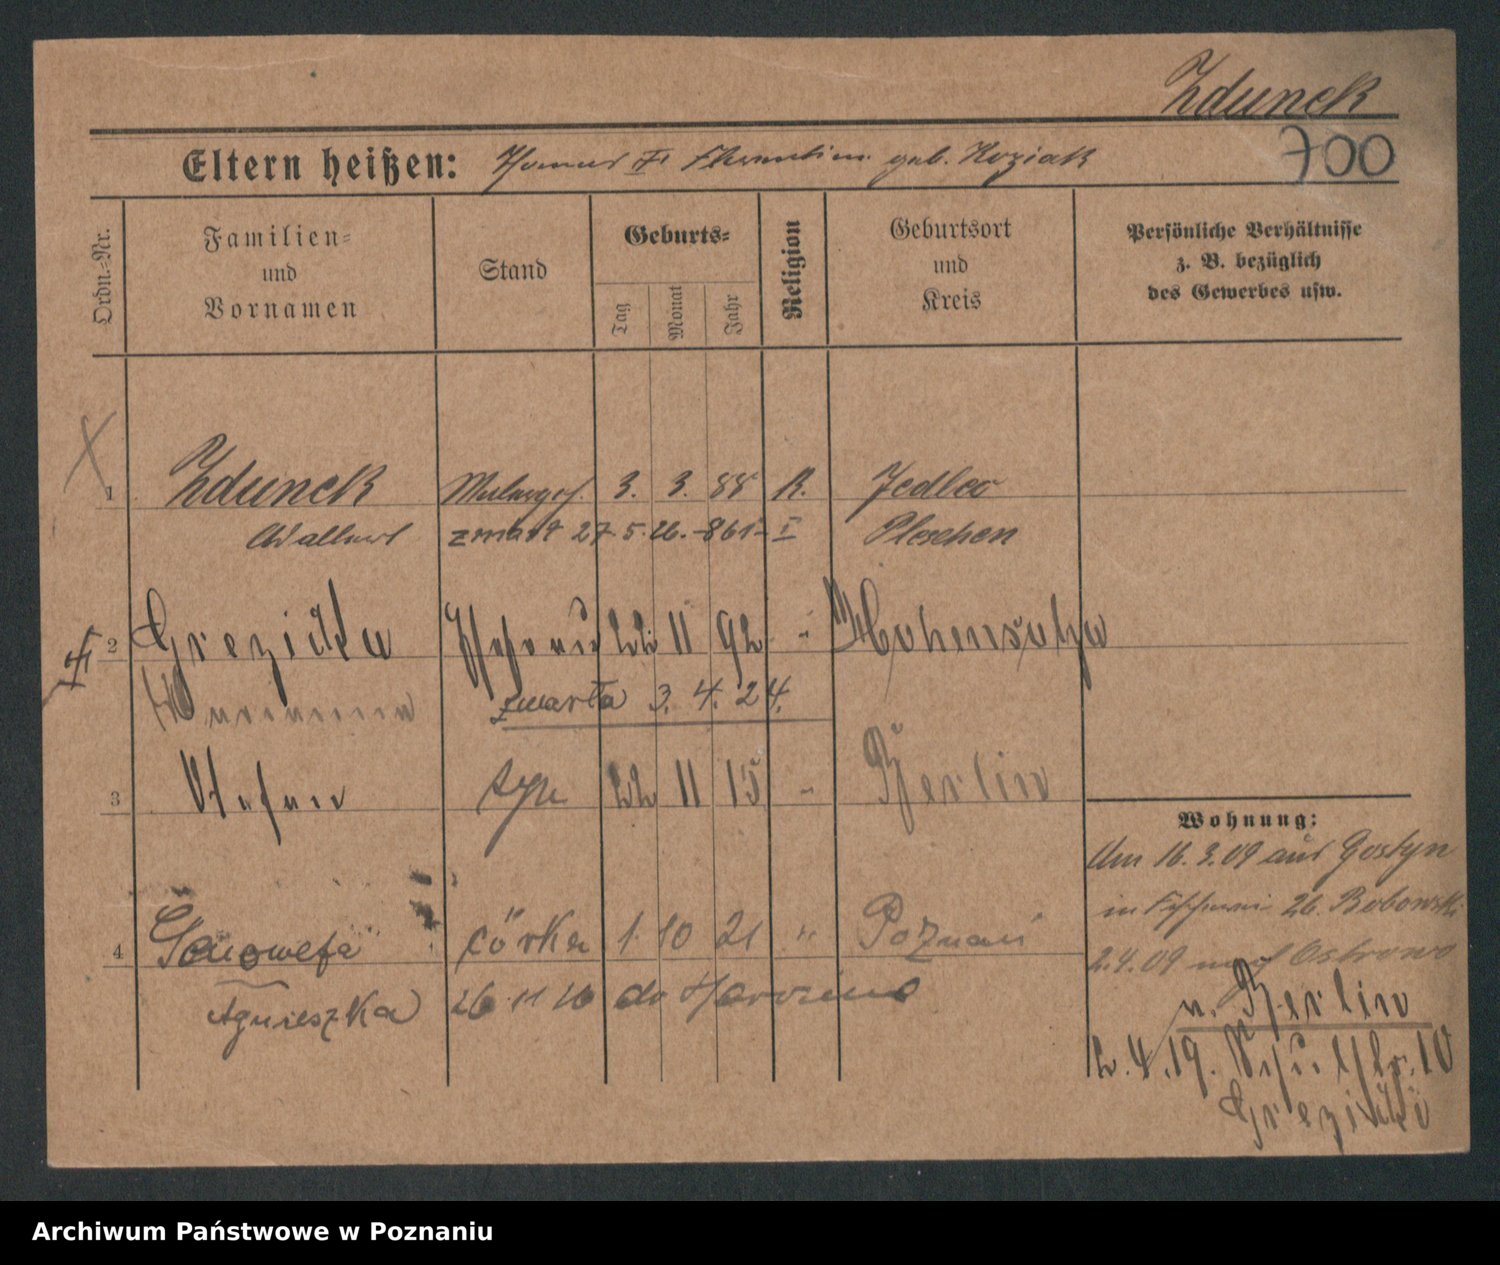 Zdunek
700
Eltern heißen: geb. Koziak
Ordn.-Nr.
Familien-
und
Vornamen
Stand
Geburts-
Tag
Monat
Jahr
Religion
Geburtsort
und
Kreis
Persönliche Verhältnisse
z. B. bezüglich
des Gewerbes usw.
1 Zdunek 3. 3. 88 R. Jedlec
Adalbert zmarł 27.5.26. -861- I Pleschen
2 Grezicka 22 11 92 - Hohensalza
zmarła 3. 4. 24.
3 Stefan 22 11 15 - Berlin
Wohnung:
Am 16.3.09 aus Gostyn
in 26. Bobowski
4 Genowefa córka 1 10 21 " Poznań
2.4.09 nach Ostrowo
Agnieszka 26 11 26 do
n. Berlin
2.4.19. 10
Grezicki